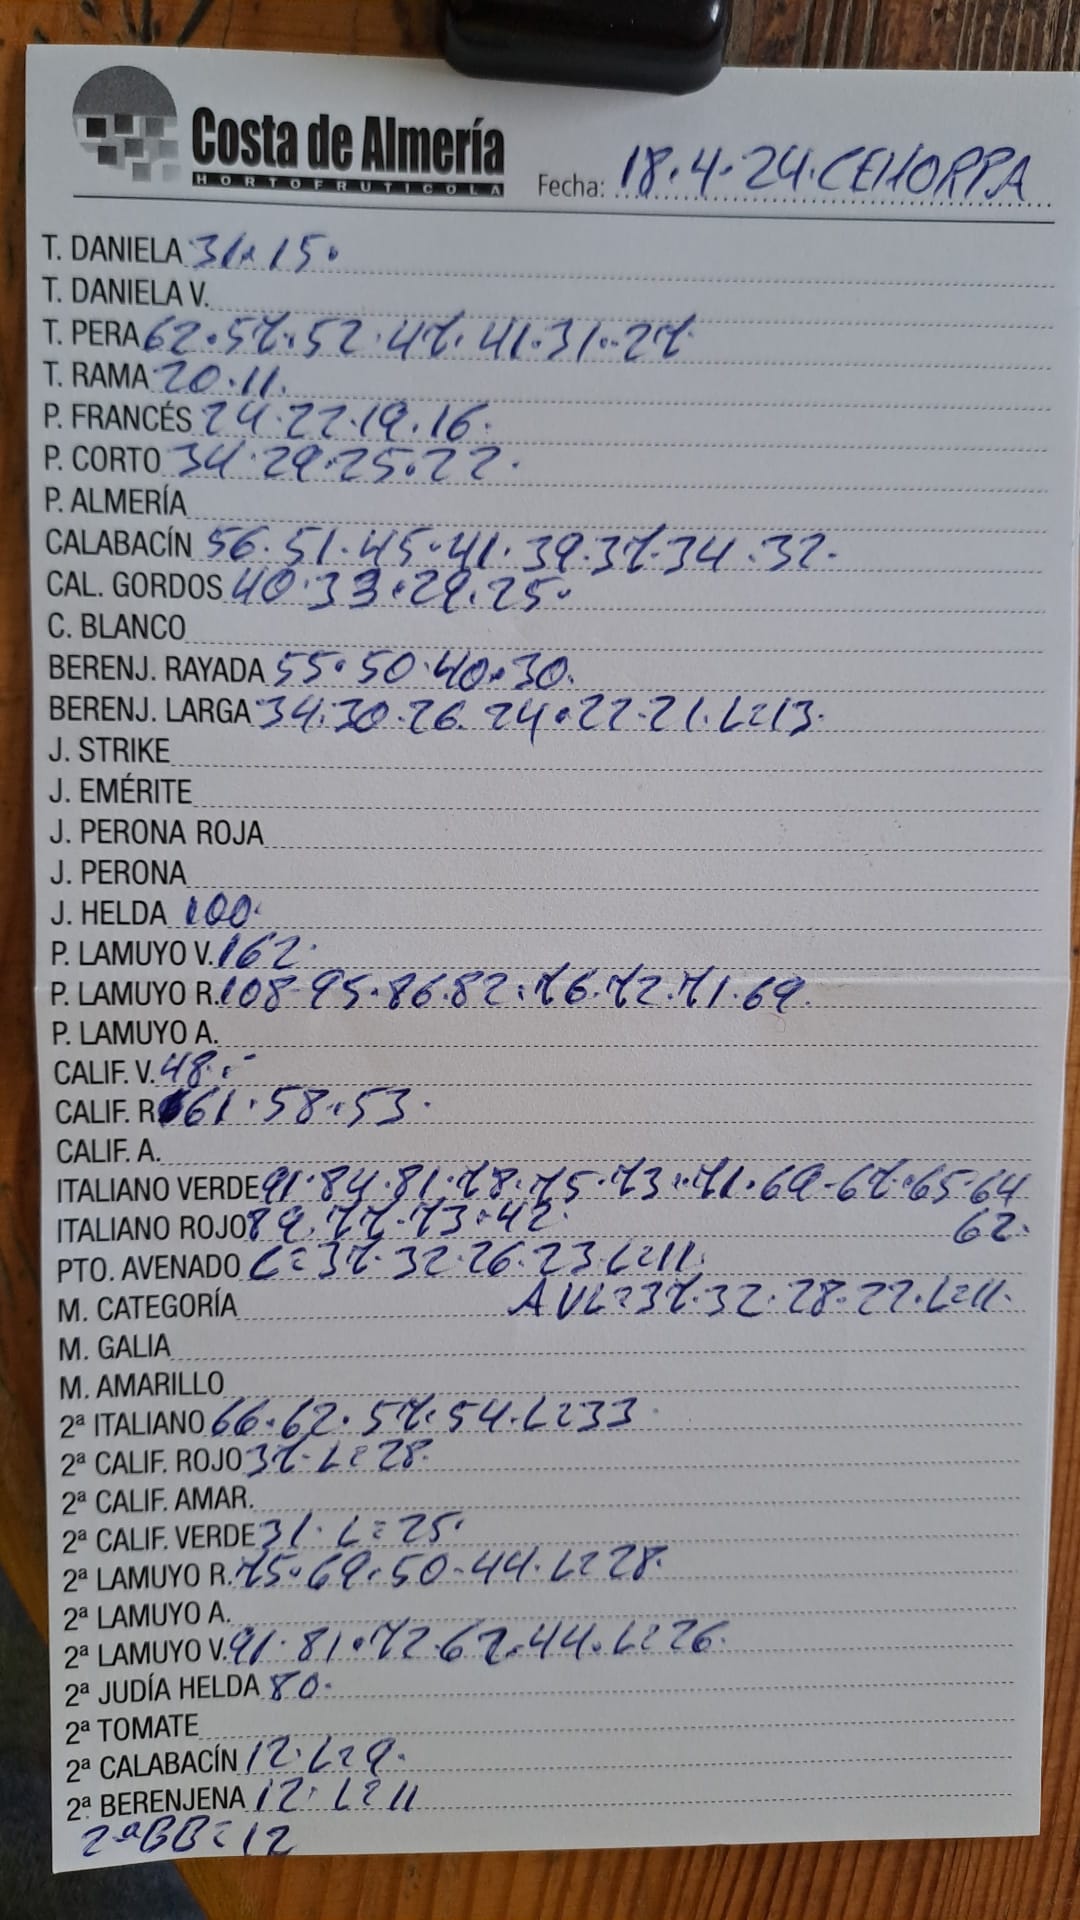 Costa de Almería
HORTOFRUTICOLA
Fecha: 18.4.24.CEHORPA
T. DANIELA 31.15.
T. DANIELA V.
T. PERA 62.57.52.47.41.31.27.
T. RAMA 20.11.
P. FRANCÉS 24.22.19.16.
P. CORTO 34.29.25.22.
P. ALMERÍA
CALABACÍN 56.51.45.41.39.37.34.32.
CAL. GORDOS 40.33.29.25.
C. BLANCO
BERENJ. RAYADA 55.50.40.30.
BERENJ. LARGA 34.30.26.24.22.21.L=13.
J. STRIKE
J. EMÉRITE
J. PERONA ROJA
J. PERONA
J. HELDA 100.
P. LAMUYO V. 162.
P. LAMUYO R. 108.95.86.82.76.72.71.69.
P. LAMUYO A.
CALIF. V. 48.
CALIF. R 61.58.53.
CALIF. A.
ITALIANO VERDE 91.84.81.78.75.73.71.69.67.65.64
ITALIANO ROJO 89.77.73.42. 62.
PTO. AVENADO C=37.32.26.23.L=11.
M. CATEGORÍA AVL=37.32.28.22.L=11.
M. GALIA
M. AMARILLO
2ª ITALIANO 66.62.57.54.L=33.
2ª CALIF. ROJO 37.L=28.
2ª CALIF. AMAR.
2ª CALIF. VERDE 31.L=25.
2ª LAMUYO R. 75.69.50.44.L=28.
2ª LAMUYO A.
2ª LAMUYO V. 91.81.72.62.44.L=26.
2ª JUDÍA HELDA 80.
2ª TOMATE
2ª CALABACÍN 12.L=9.
2ª BERENJENA 12.L=11
2ªBB=12